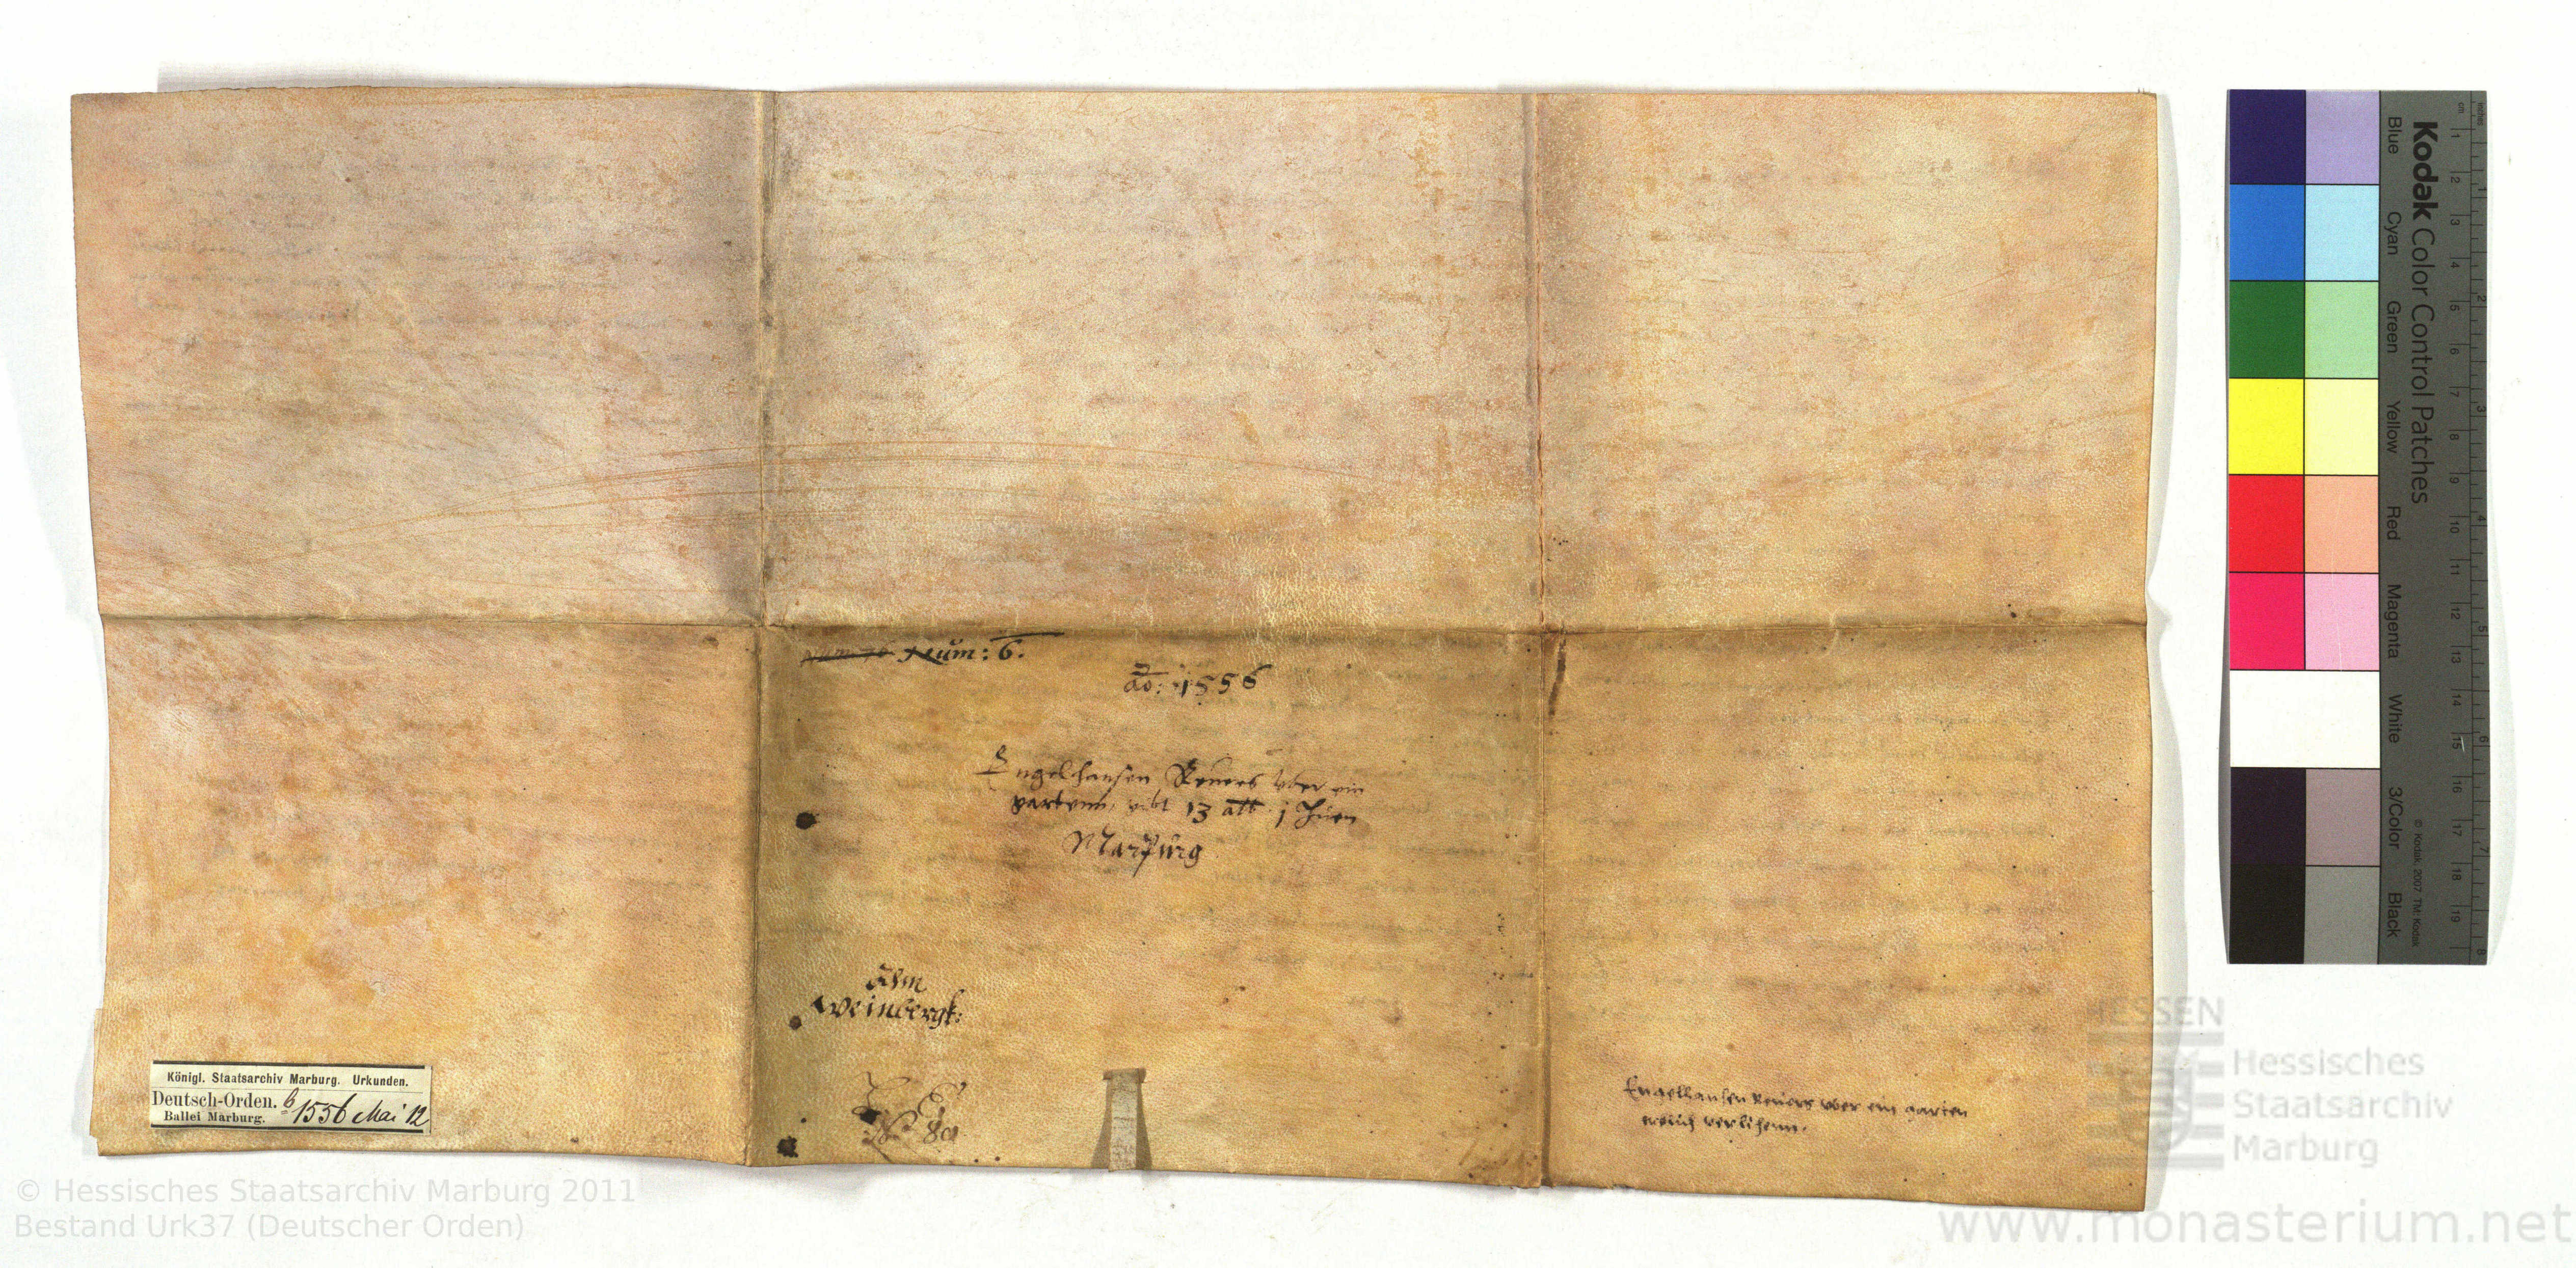 Num: 6.
ao: 1556
Engelhansen Reuers vber ein
gartenn, gibt 13 alb j huen
Marpurg
Ahm
Weinbergk:
Engelhansen Reuers vber ein garten
erblich verlihenn.
Königl. Staatsarchiv Marburg. Urkunden.
Deutsch-Orden. 1556 Mai 12
Ballei Marburg.
© Hessisches Staatsarchiv Marburg 2011
Bestand Urk37 (Deutscher Orden)
HESSEN
Hessisches
Staatsarchiv
Marburg
www.monasterium.net
Kodak Color Control Patches
Blue Cyan Green Yellow Red Magenta White 3/Color Black
© Kodak, 2007 TM: Kodak
cm 1 2 3 4 5 6 7 8 9 10 11 12 13 14 15 16 17 18 19
inches 1 2 3 4 5 6 7 8